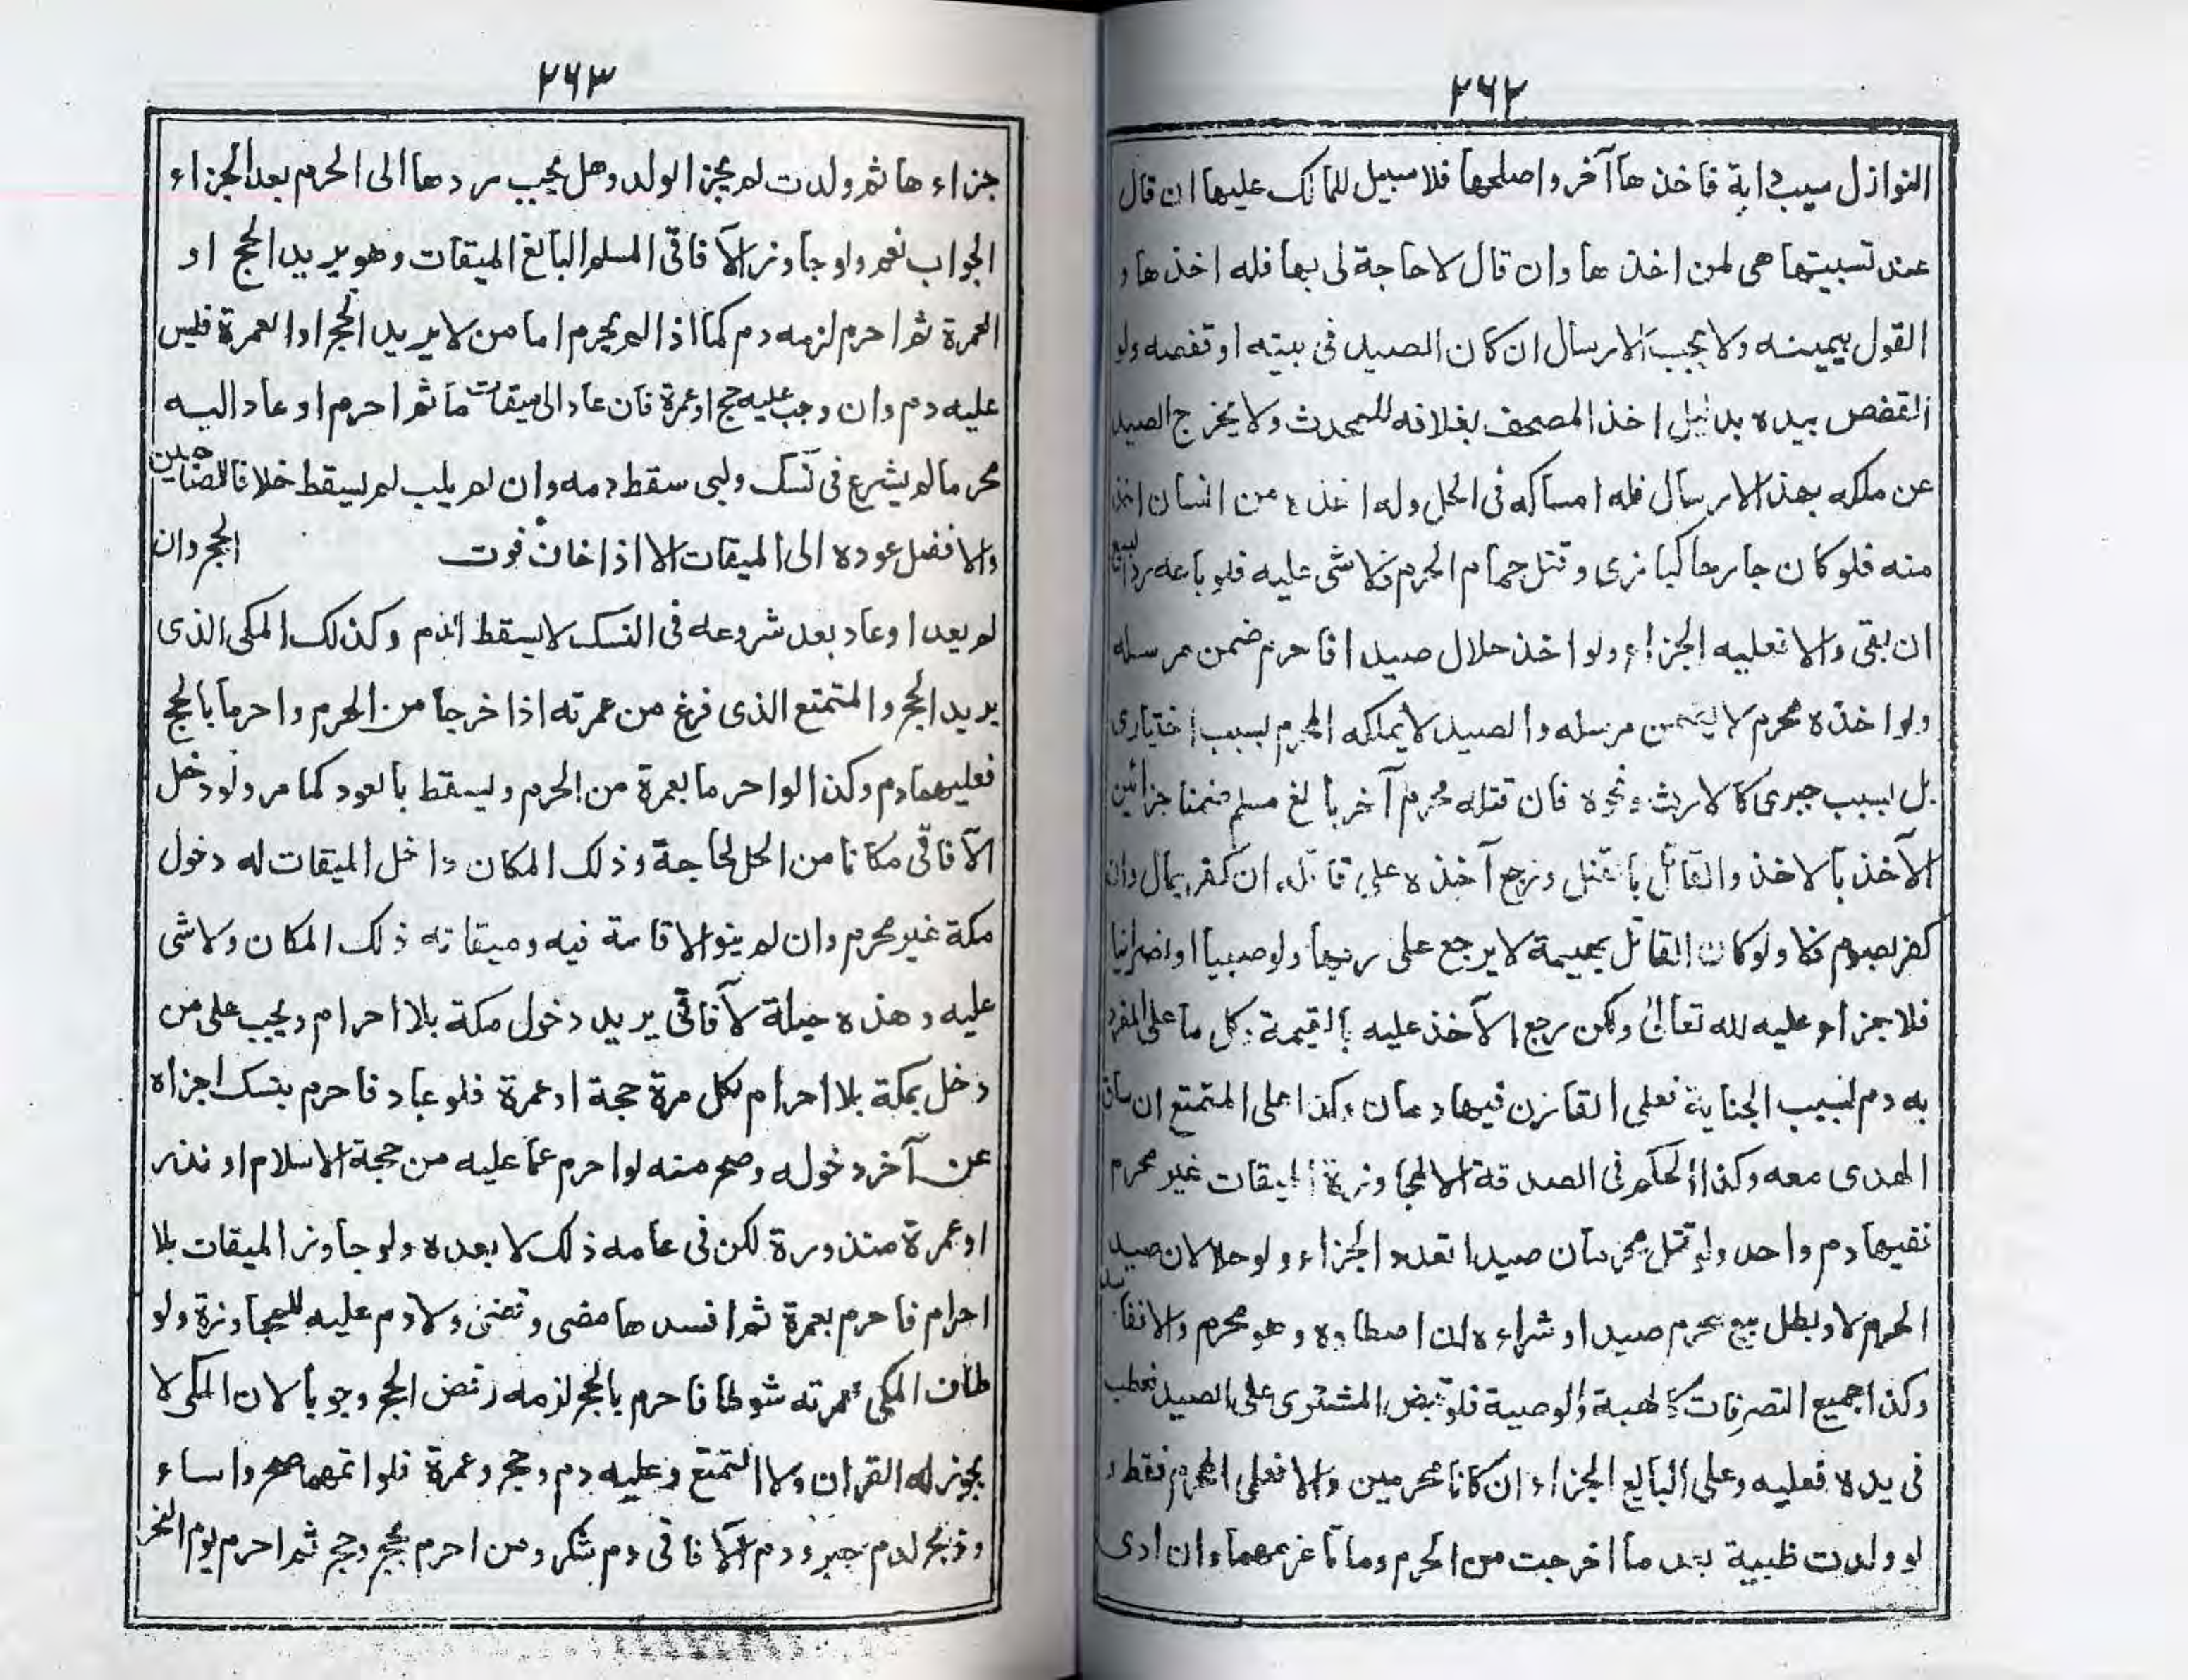 ٢٦٢
النوازل سيب دابة فاخذها آخر واصلحها فلا سبيل للمالك عليها ان قال
عند تسييبها هى لمن اخذها وان قال لا حاجة لى بها فله اخذها و
القول بيمينه ولا يجب الارسال ان كان الصيد فى بيته او قفصه ولو
القفص بيده بدليل اخذ المصحف بغلافه للمحدث ولا يخرج الصيد
عن ملكه بهذا الارسال فله امساكه فى الحل وله اخذه من انسان اخذه
منه فلو كان جارحا كبازى وقتل حمام الحرم فلا شى عليه فلو باعه رد البيع
ان بقى والا فعليه الجزاء ولو اخذ حلال صيدا فاحرم ضمن مرسله
ولو اخذه محرم لا يضمن مرسله والصيد لا يملكه المحرم بسبب اختيارى
بل بسبب جبرى كالارث ونحوه فان قتله محرم آخر بالغ مسلم ضمنا جزائين
الآخذ بالاخذ والقاتل بالقتل ورجع آخذه على قاتله ان كفر بمال وان
كفر بصوم فلا ولو كان القاتل بهيمة لا يرجع على ربها ولو صبيا او نصرانيا
فلا جزاء عليه لله تعالى ولكن يرجع الآخذ عليه بالقيمة كل ما على المفرد
به دم بسبب الجناية فعلى القارن فيها دمان وكذا على المتمتع ان ساق
الهدى معه وكذا الحكم فى الصدقة الا لمجاوزة الميقات غير محرم
نفيها دم واحد ولو قتل محرمان صيدا تعدد الجزاء ولو حلالان صيد
الحرم لا وبطل بيع محرم صيدا وشراءه ان اصطاده وهو محرم والا نفاسد
وكذا جميع التصرفات كالهبة والوصية فلو قبض المشترى على الصيد فعطب
فى يده فعليه وعلى البايع الجزاء ان كانا محرمين والا فعلى المحرم فقط و
لو ولدت ظبية بعد ما اخرجت من الحرم وماتا غرمهما وان ادى
٢٦٣
جزاءها ثم ولدت لم يجز الولد وهل يجب ردها الى الحرم بعد الجزاء
الجواب نعم ولو جاوز الآفاقى المسلم البالغ الميقات وهو يريد الحج او
العمرة ثم احرم لزمه دم كما اذا لم يحرم اما من لا يريد الحج او العمرة فليس
عليه دم وان وجب عليه حج او عمرة فان عاد الى ميقات ما ثم احرم او عاد اليه
محرما لم يشرع فى نسك ولبى سقط دمه وان لم يلب لم يسقط خلافا للصاحبين
والافضل عوده الى الميقات الا اذا خاف فوت الحج وان
لم يعد او عاد بعد شروعه فى النسك لا يسقط الدم وكذلك المكى الذى
يريد الحج والمتمتع الذى فرغ من عمرته اذا خرجا من الحرم واحرما بالحج
فعليهما دم وكذا لو احرما بعمرة من الحرم ويسقط بالعود كما مر ولو دخل
الآفاقى مكانا من الحل لحاجة وذلك المكان داخل الميقات له دخول
مكة غير محرم وان لم ينو الاقامة فيه وميقاته ذلك المكان ولا شى
عليه وهذه حيلة لآفاقى يريد دخول مكة بلا احرام ويجب على من
دخل بمكة بلا احرام لكل مرة حجة او عمرة فلو عاد فاحرم بنسك اجزاه
عن آخر دخوله وصح منه لو احرم عما عليه من حجة الاسلام او نذر
او عمرة منذورة لكن فى عامه ذلك لا بعده ولو جاوز الميقات بلا
احرام فاحرم بعمرة ثم افسدها مضى وقضى ولا دم عليه للمجاوزة ولو
طاف المكى لعمرته شوطا فاحرم بالحج لزمه رفض الحج وجوبا لان المكى لا
يجوز له القران ولا التمتع وعليه دم وحج وعمرة فلو اتمهما صح واساء
وذبح لدم جبر ودم الآفاقى دم شكر ومن احرم بحج وحج ثم احرم يوم النحر